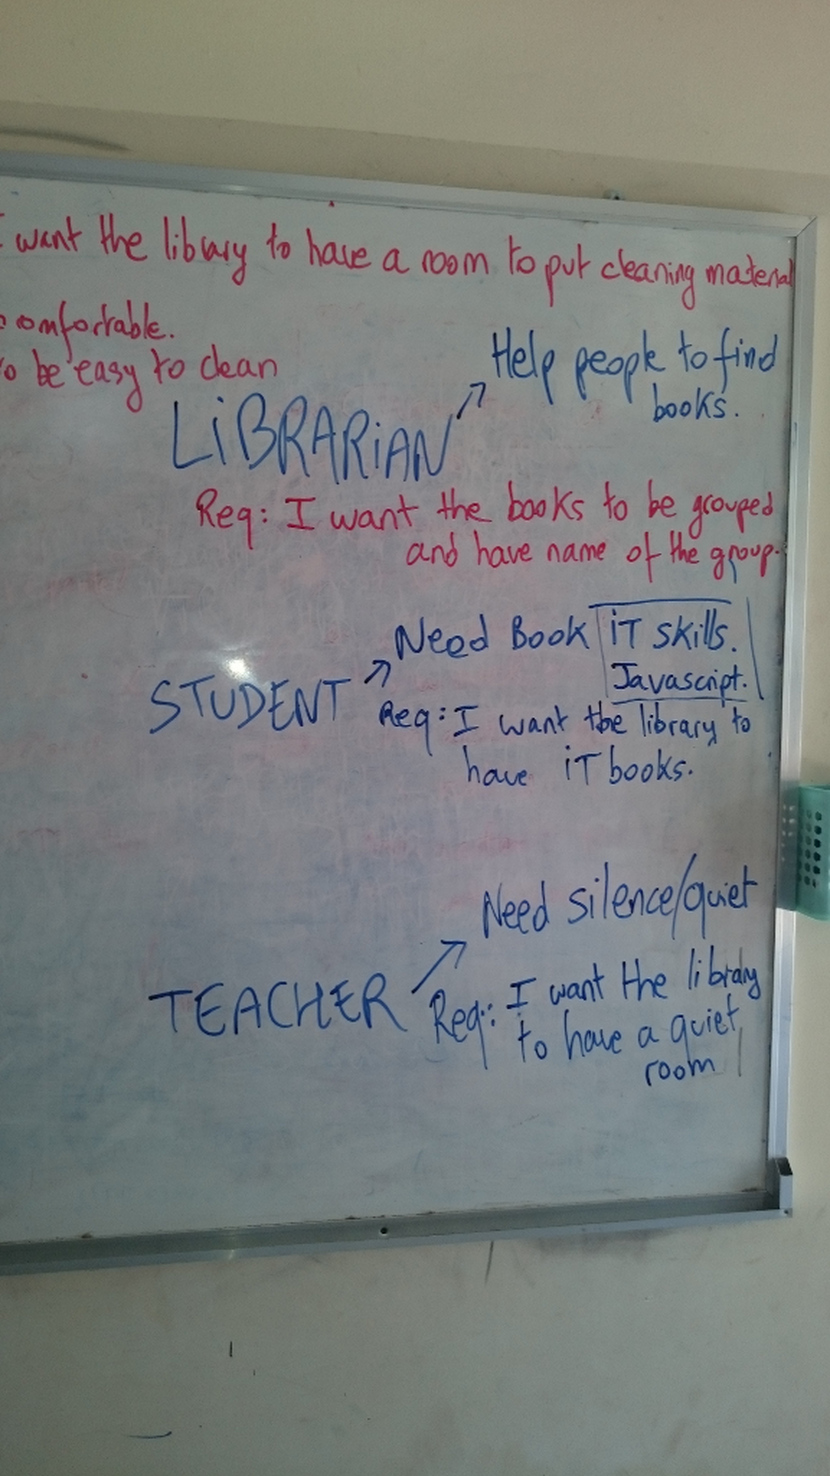 I want the library to have a room to put cleaning material
comfortable.
to be easy to clean
Help people to find
books.
LiBRARiAN
Req: I want the books to be grouped
and have name of the group.
Need Book iT skills.
Javascript.
STUDENT
Req: I want the library to
have iT books.
Need silence/quiet
TEACHER
Req: I want the library
to have a quiet
room